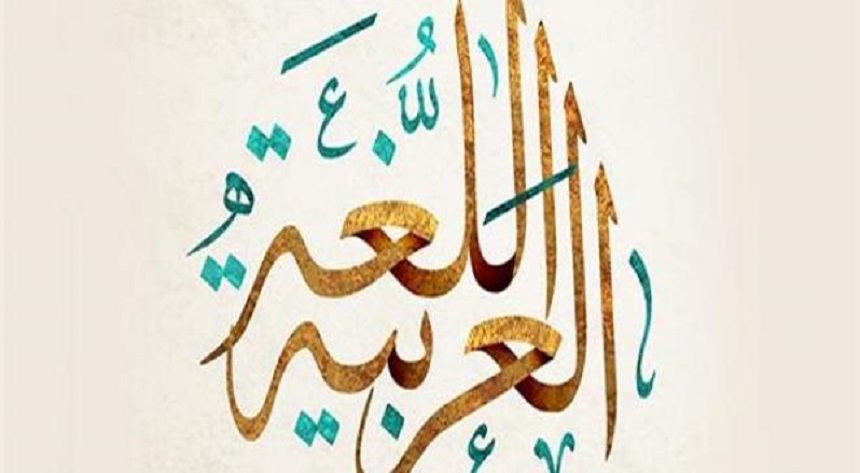 اللُّغَة
العربية